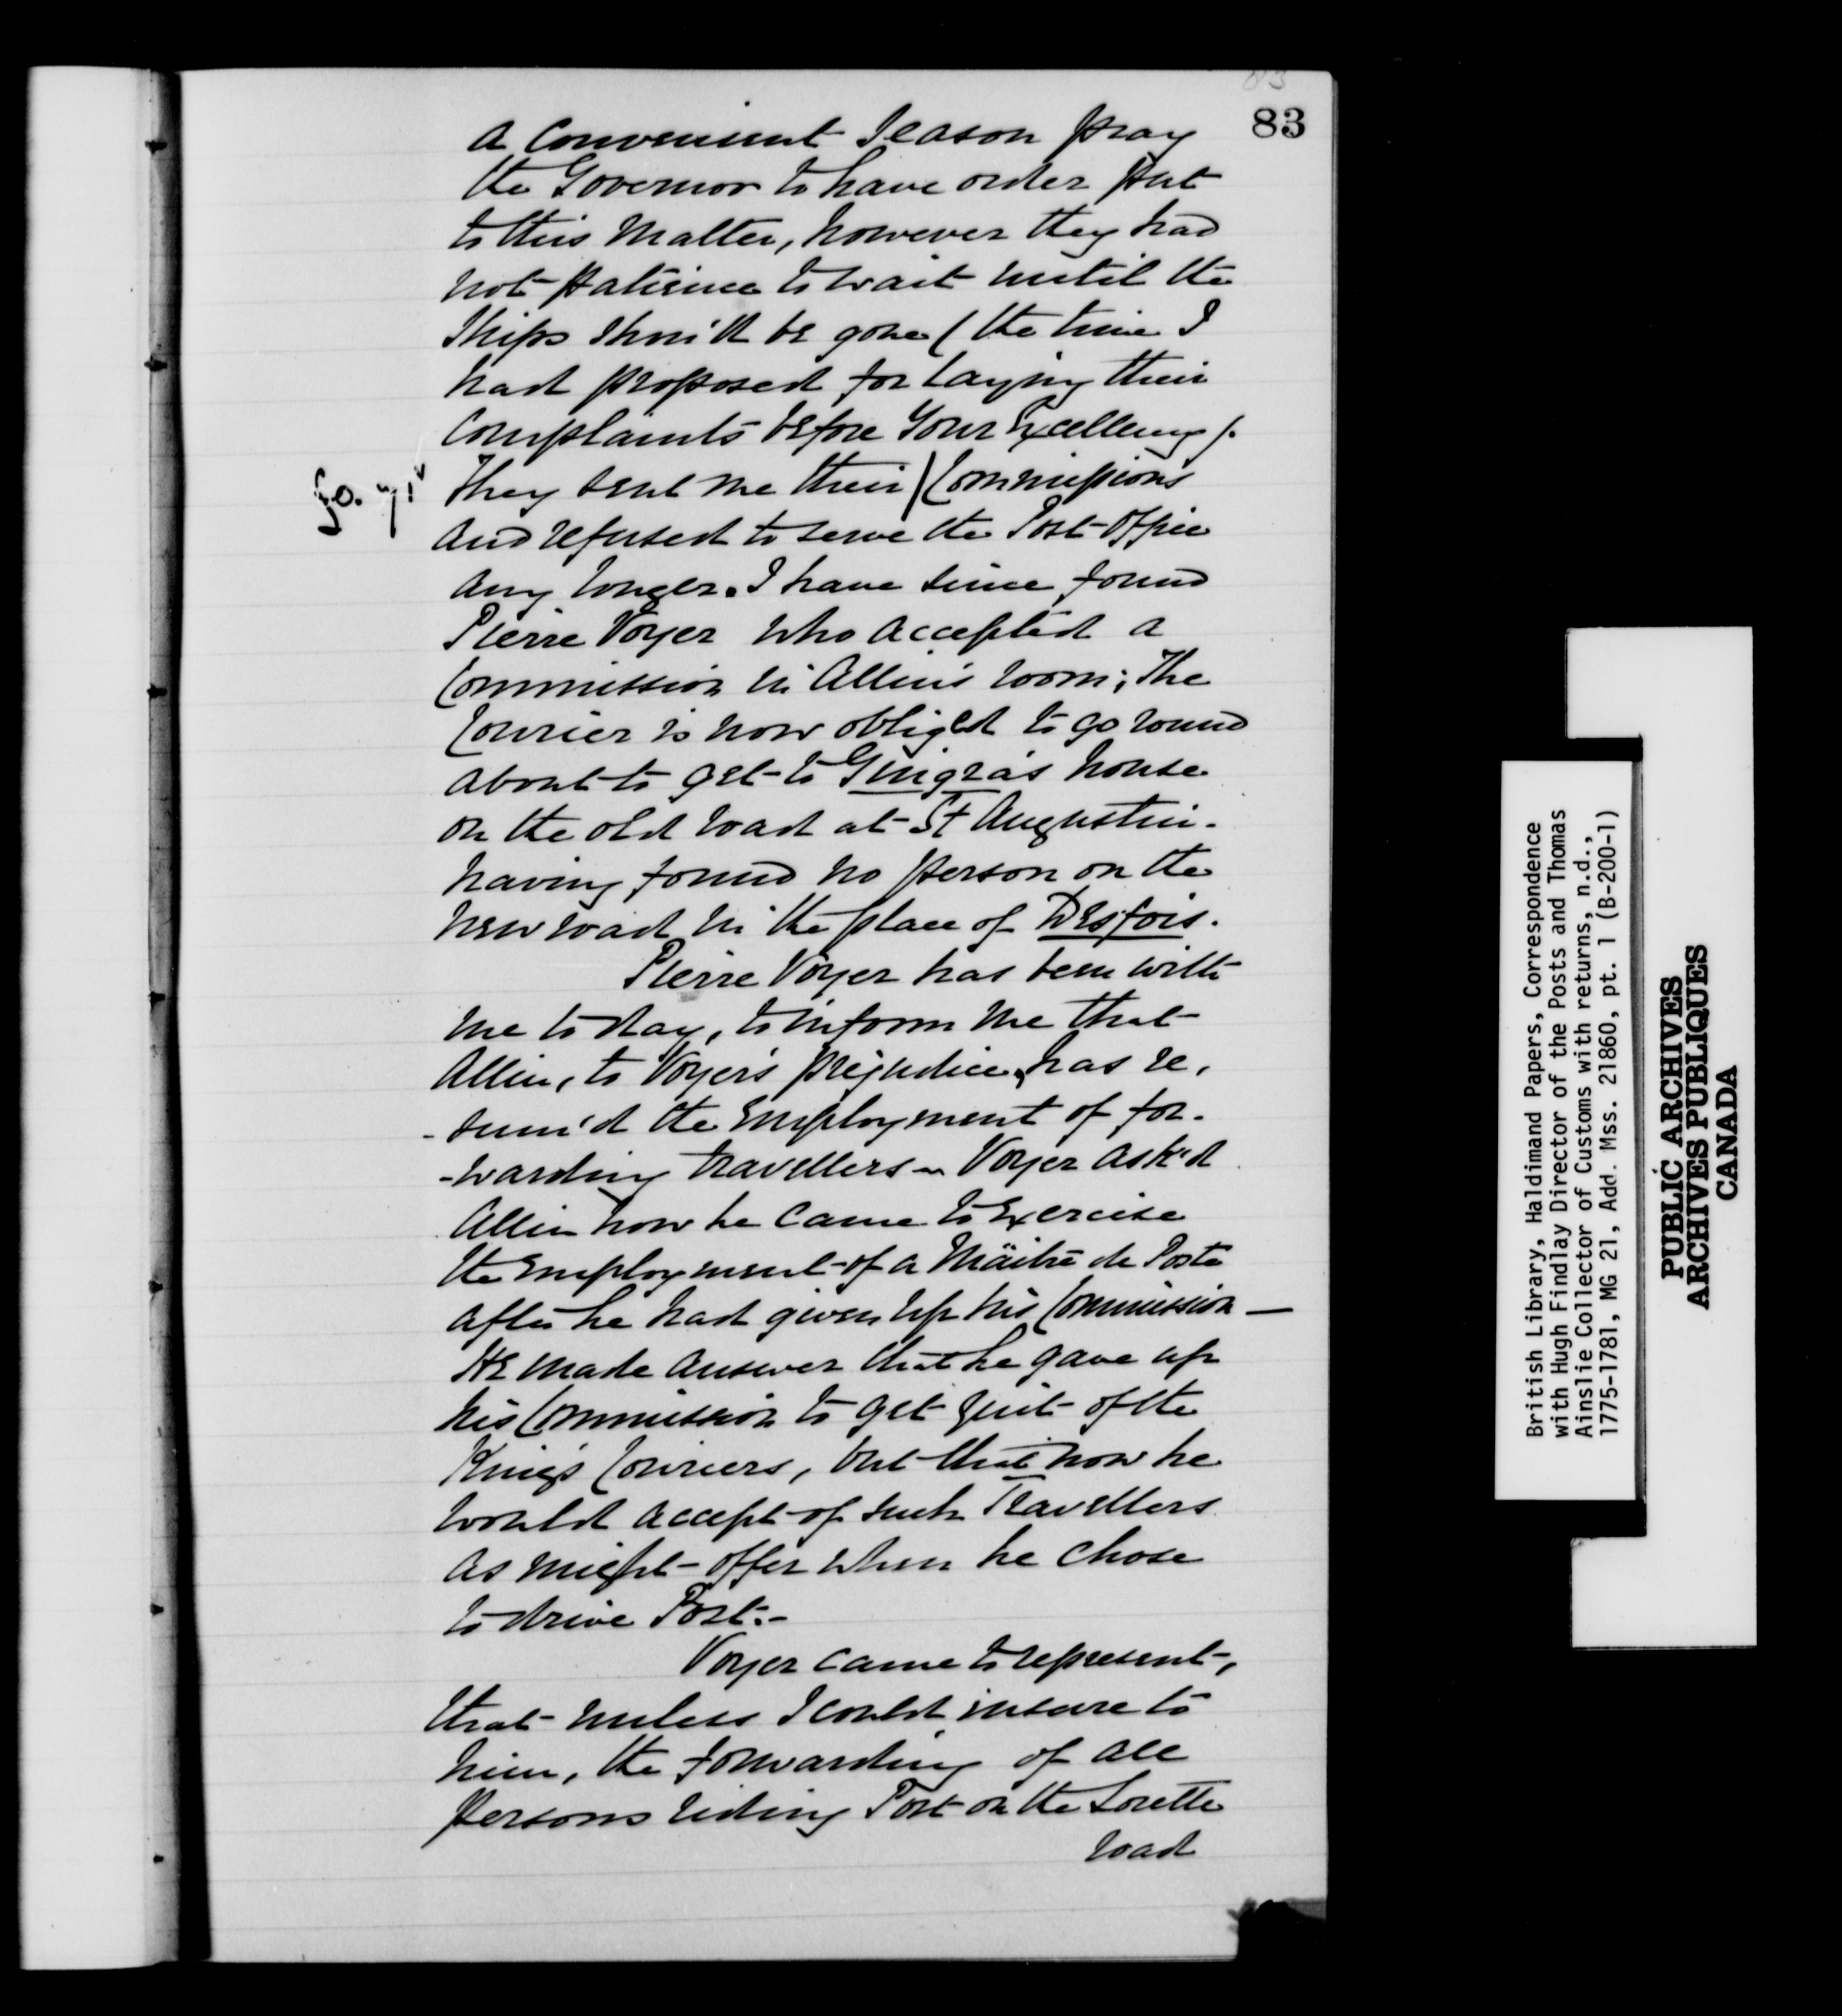 83
83
a Convenient Season pray
the Governor to have order put
to this matter, however they had
not patience to wait until the
Ships shou'd be gone (the time I
had proposed for laying their
Complaints before Your Excellency).
fo. 71v
They sent me their / Commissions
and refused to serve the Post-Office
any longer. I have since found
Pierre Voyer who accepted a
Commission in Allin's room; The
Courier is now obliged to go round
about to get to Gingra's house
on the old road at St Augustin.
having found no person on the
new road in the place of Desfois.
Pierre Voyer has been with
me to day, to inform me that
Allin, to Voyer's prejudice, has re,
-sum'd the Employment of for-
-warding travellers ~ Voyer ask'd
Allin how he came to Exercise
the Employment of a Mäitre de Poste
after he had given up his Commission —
He made answer that he gave up
his Commission to get quit of the
King's Couriers, but that now he
would accept of such Travellers
as might offer when he chose
to drive Post:-
Voyer came to represent,
that unless I could insure to
him, the forwarding of all
persons riding Post on the Lorette
road
British Library, Haldimand Papers, Correspondence
with Hugh Findlay Director of the Posts and Thomas
Ainslie Collector of Customs with returns, n.d.,
1775-1781, MG 21, Add. Mss. 21860, pt. 1 (B-200-1)
PUBLIC ARCHIVES
ARCHIVES PUBLIQUES
CANADA